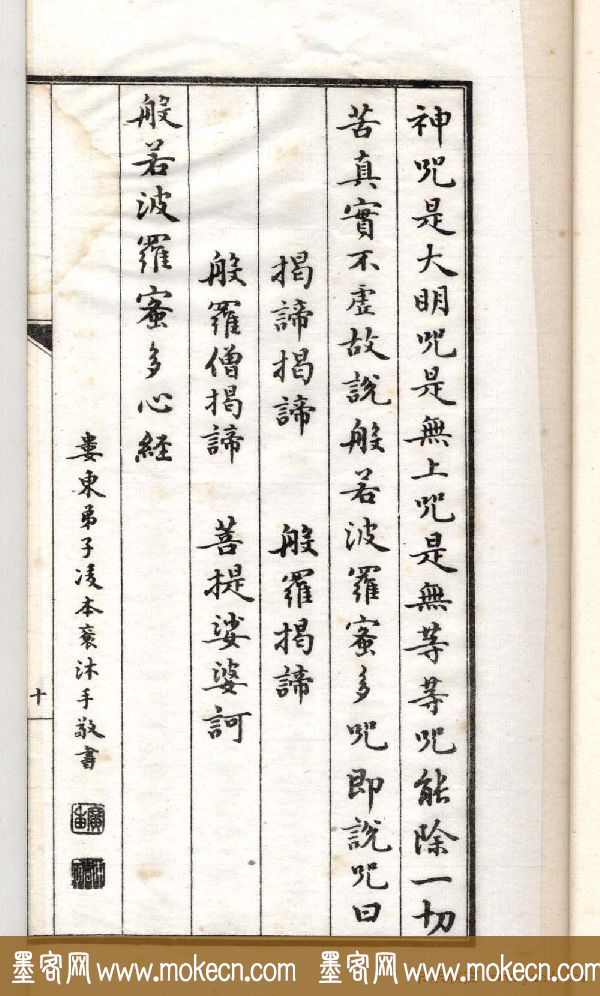 神呪是大明呪是無上呪是無等等呪能除一切
苦真實不虛故說般若波羅蜜多呪即說呪曰
揭諦揭諦 般羅揭諦
般羅僧揭諦 菩提娑婆訶
般若波羅蜜多心經
婁東弟子凌本沐手敬書
十
墨客网 www.mokecn.com 墨客网 www.mokecn.com